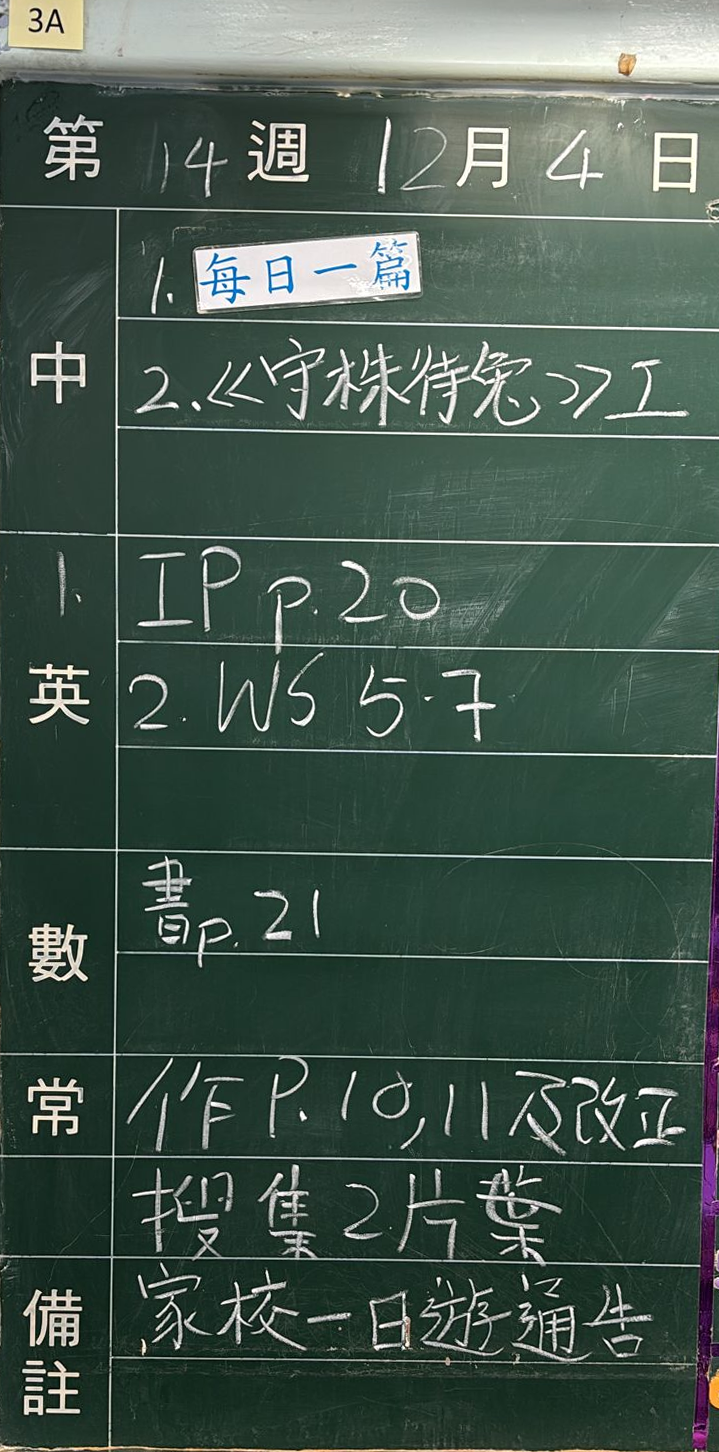 3A
第 14 週 12 月 4 日
中
1. 每日一篇
2.《守株待兔》工
英
1. IP p.20
2. WS 5.7
數
書p.21
常
作P.10,11及改正
搜集2片葉
備註
家校一日遊通告